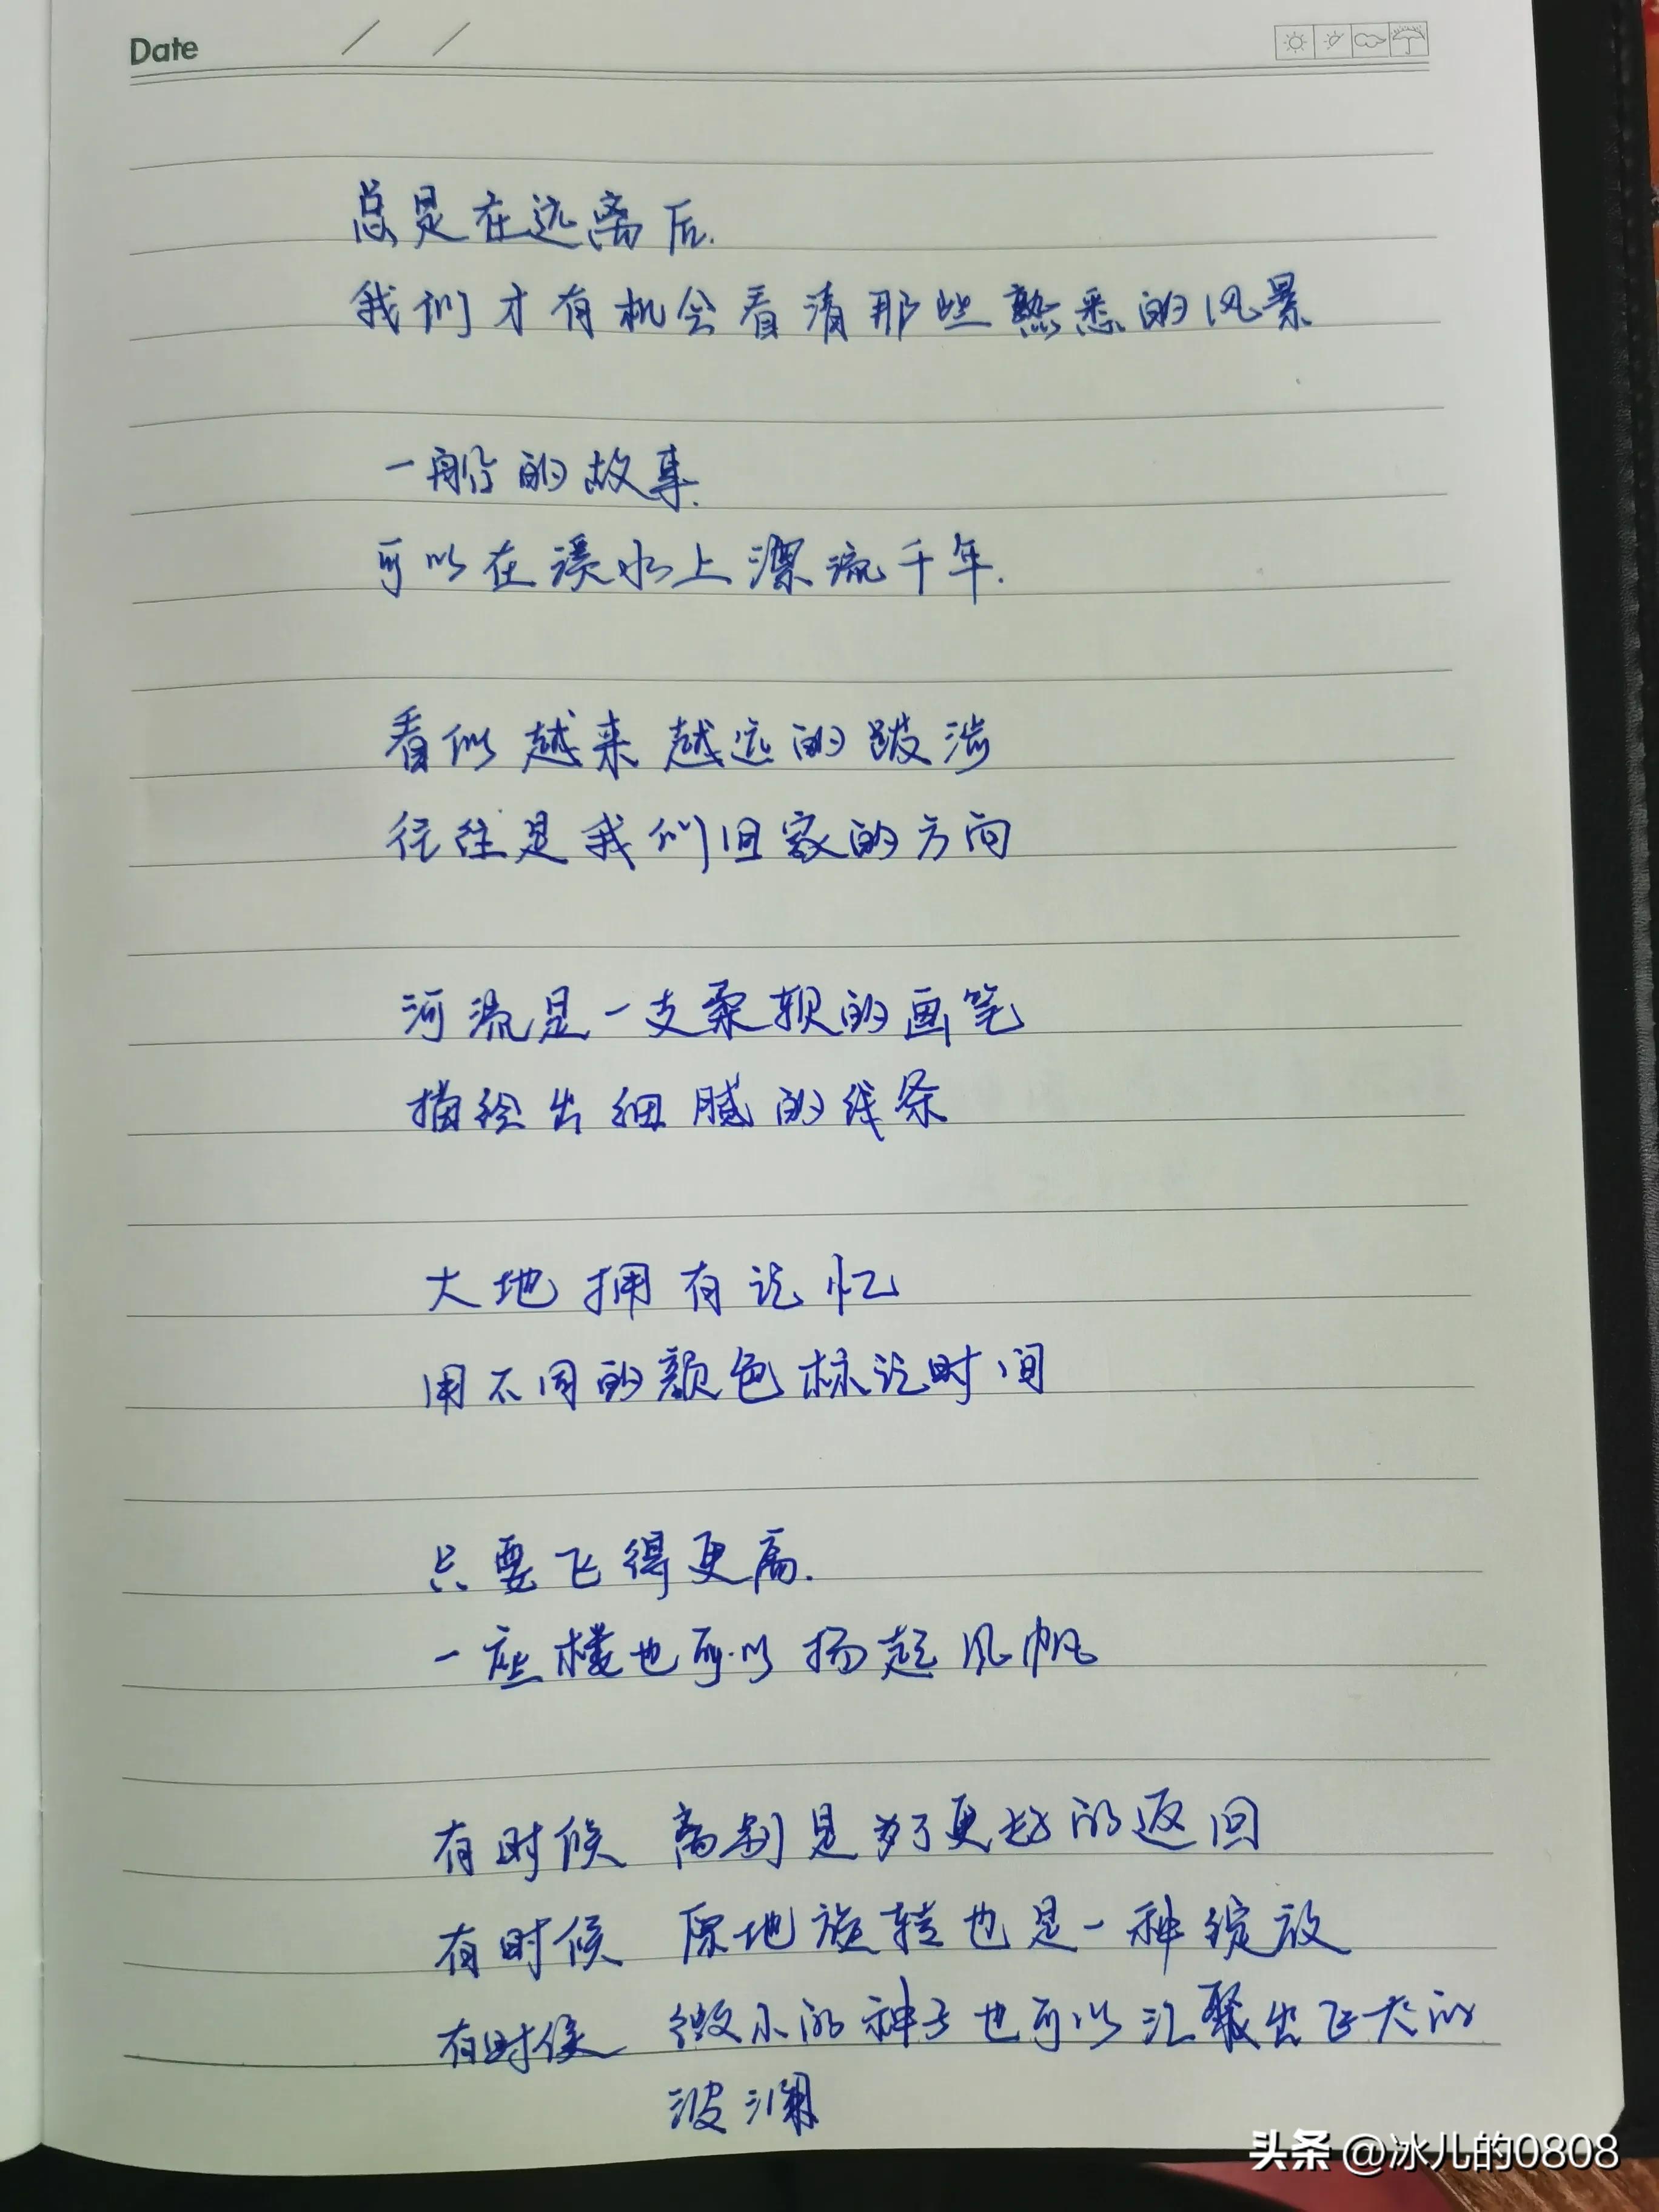 Date / /
总是在远离后.
我们才有机会看清那些熟悉的风景
一船的故事.
可以在溪水上漂流千年.
看似越来越远的跋涉
往往是我们回家的方向
河流是一支柔软的画笔
描绘出细腻的线条
大地拥有记忆
用不同的颜色标记时间
只要飞得更高.
一座楼也可以扬起风帆
有时候 离别是为了更好的返回
有时候 原地旋转也是一种绽放
有时候 微小的种子也可以汇聚出巨大的
波澜
头条 @冰儿的0808